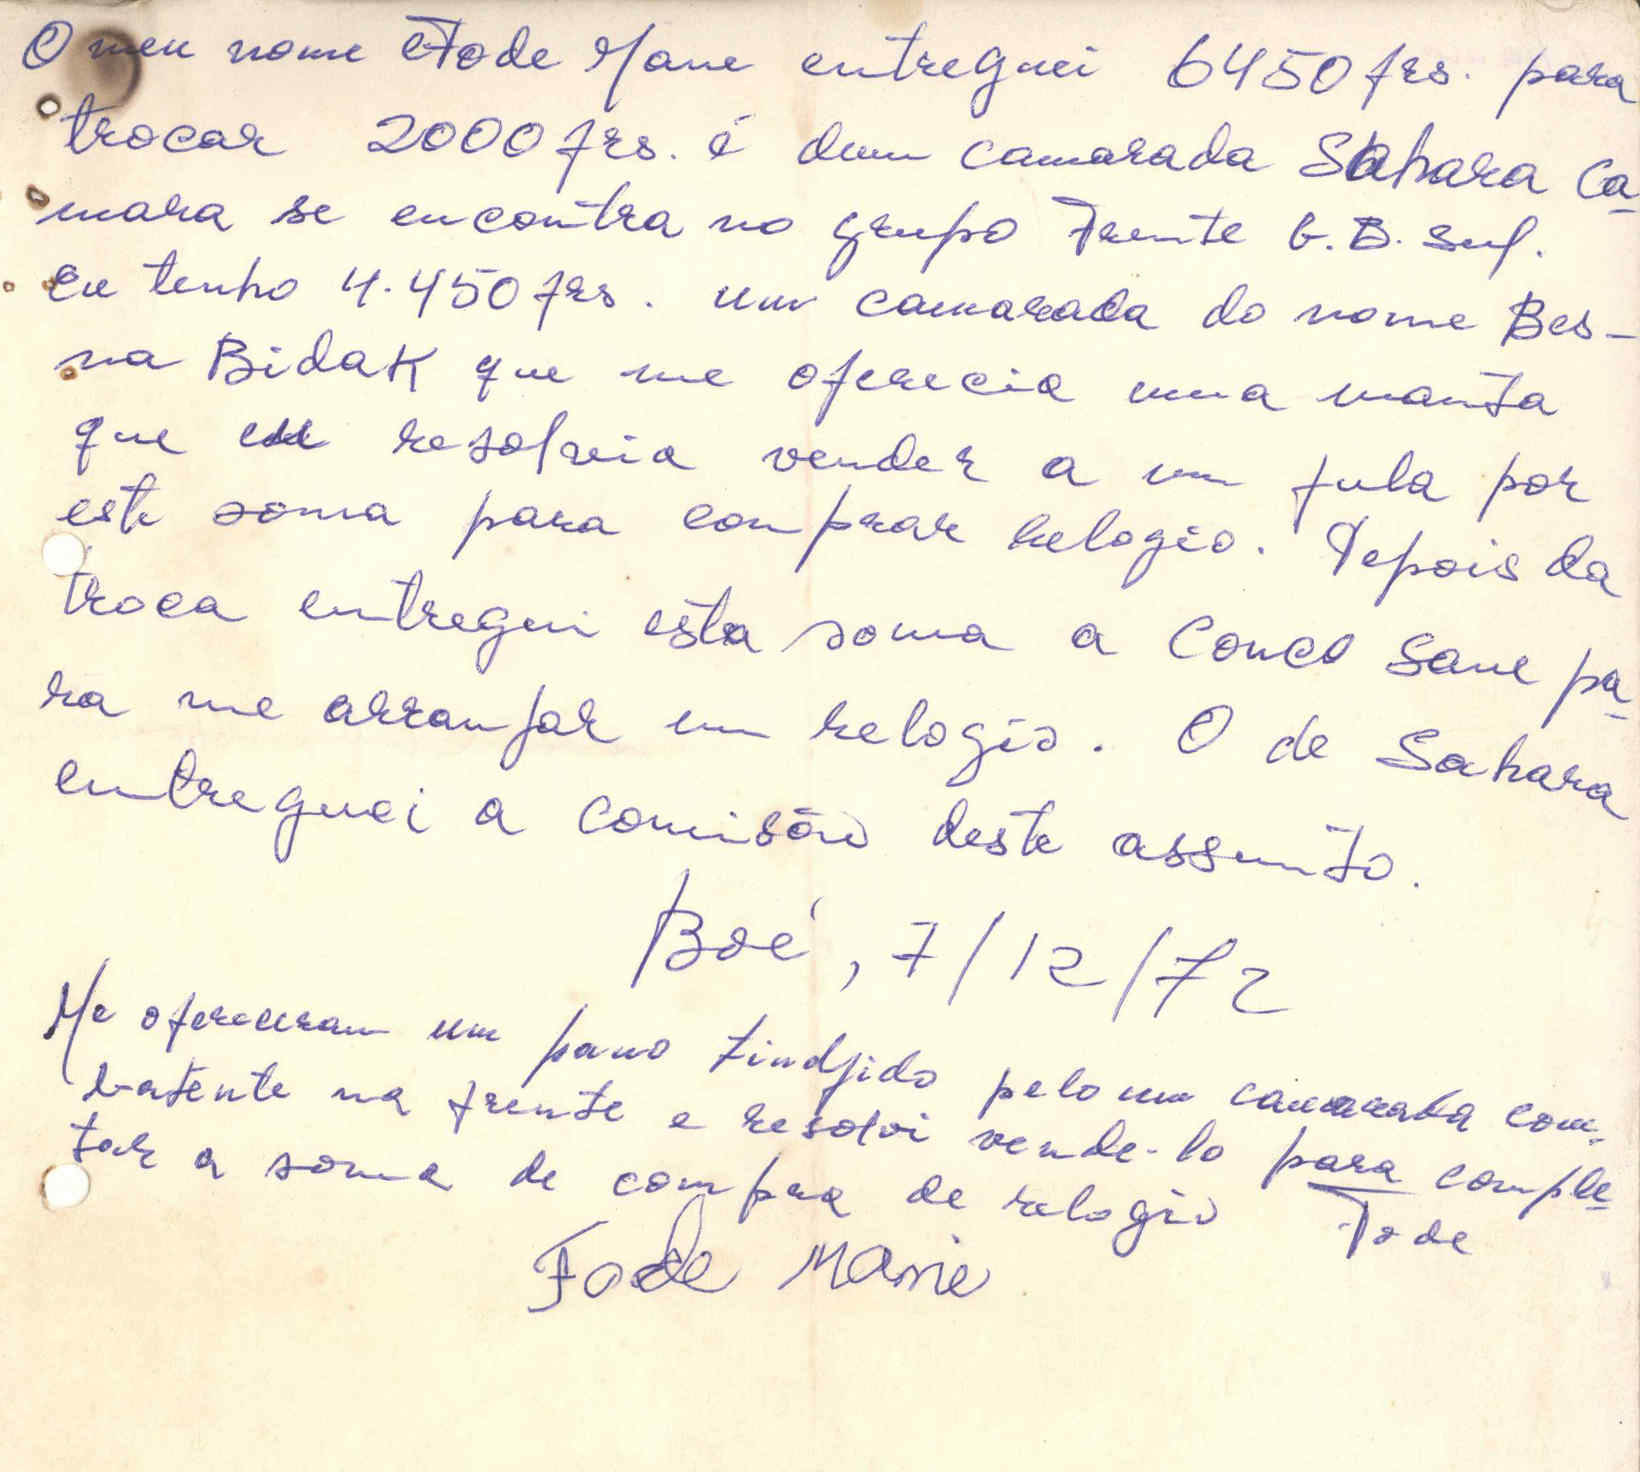 O meu nome é Fode Mane entreguei 6450 frs. para
trocar 2000 frs. é dum camarada Sahara Ca-
mara se encontra no grupo Frente G.B. sul.
Eu tenho 4.450 frs. um camarada do nome Bes-
na Bidak que me oferecia uma manta
que eu resolveia vender a um fula por
este soma para comprar relogio. Depois da
troca entregui esta soma a Conco Sane pa-
ra me arranjar um relogio. O de Sahara
entreguei a comisão deste assunto.
Boé, 7/12/72
Me ofereceram um pano tindjido pelo um camarada com-
batente na frente e resolvi vende-lo para comple-
tar a soma de compra de relogio Fode
Fode Mane